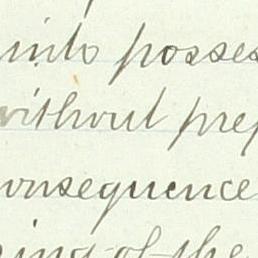 into posses
without prep
onsequence
ing of the